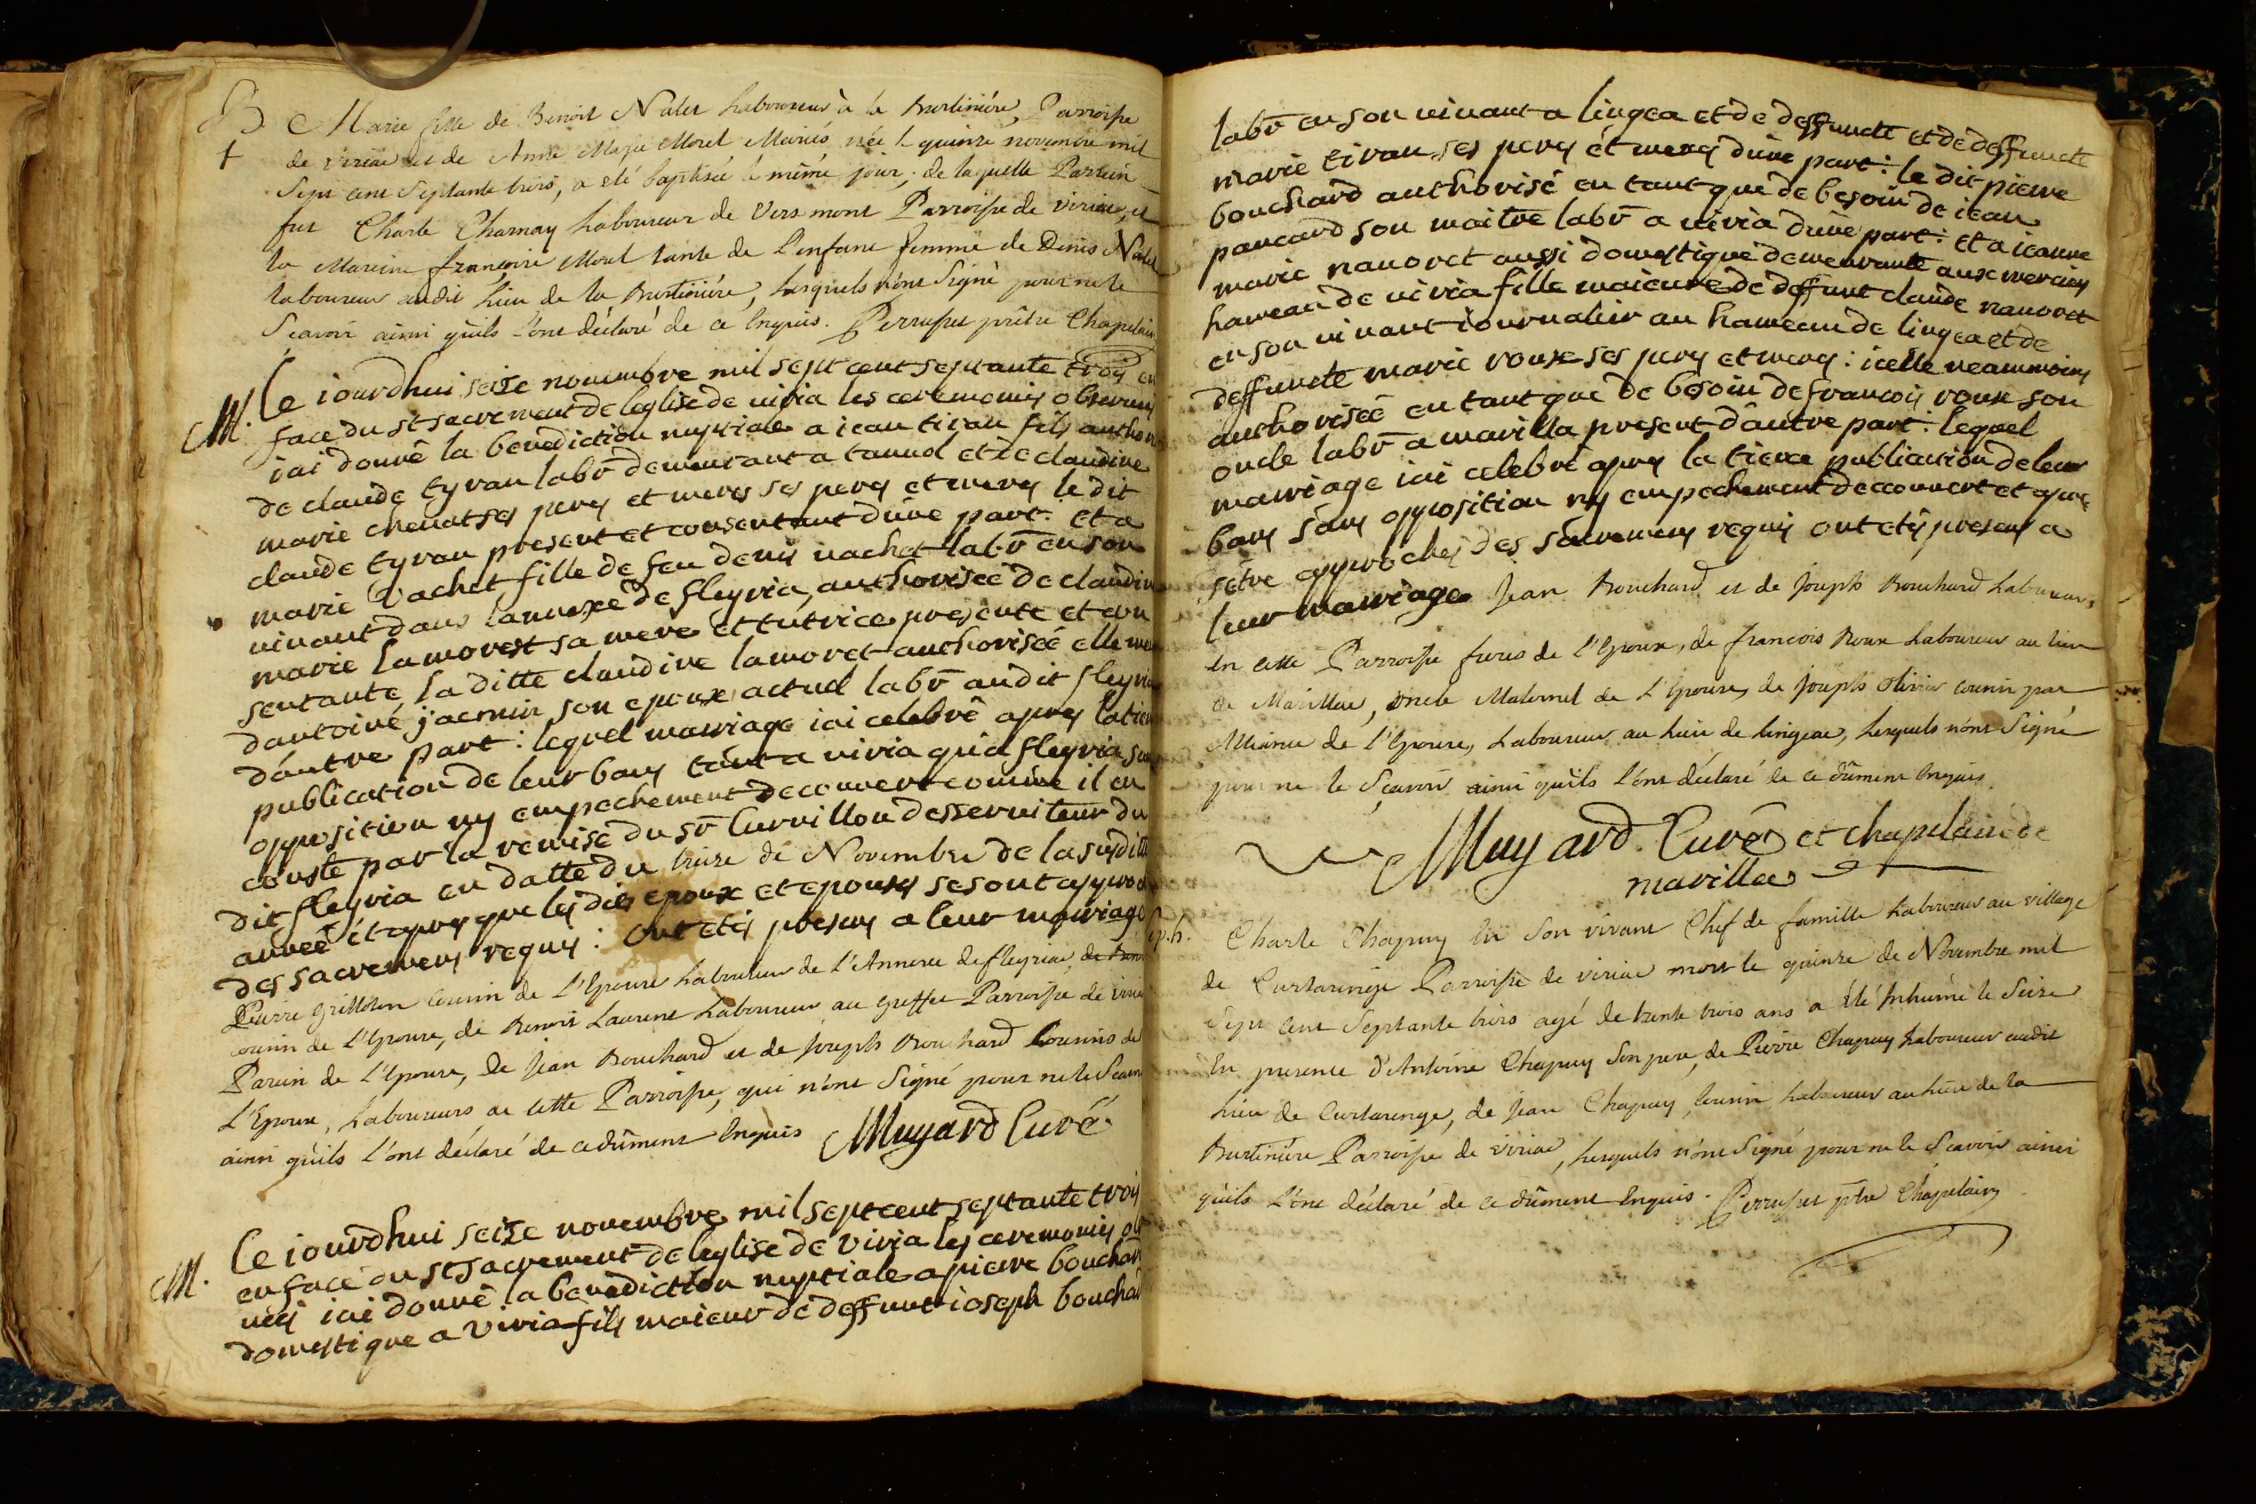 B. Marie fille de Benoit Nalet Laboureur à la Burtiniére, Parroisse
+ de viriac et de Anne Marie Morel Mariés née le quinze novembre mil
Sept cent Septante trois, a eté baptisée le même jour; de laquelle Parrein
fut Charle Charnay Laboureur de Vers mont Parroisse de viriac, et
la Mareine françoise Morel tante de L'enfant femme de Denis Nalet
laboureur audit lieu de la Burtiniére, lesquels n'ont Signé pour ne le
Scavoir ainsi qu'ils l'ont déclaré de ce Enquis. Perruset prêtre Chapelain
M. Ce iourdhui seize nouembre mil sept cent septante trois en
face du st sacrement de leglise de viria les ceremonies obseruées
iai donné la benediction nuptiale a iean tiran fils authori
de claude tyran labr̄ demeurant a tanuol et de claudine
marie chenat ses peres et meres ses peres et meres le dit
claude tyran present et consentant d'une part: et a
marie vachet fille de feu denis vachet labr̄ en son
uiuant dans lannexe de fleyria, authorisée de claudine
marie lamorest sa mere et tutrice presente et con
sentante la ditte claudine lamoret authorisée elle me
dantoine jacmin son epoux actuel labr̄ audit fleyria
dautre part: lequel mariage iai celebré apres la tier
publication de leur bans tant a viria qu'a fleyria sans
opposition ny empechement decouvert comme il en
conste par la remise du sr̄ Curvillon desseruiteur du
dit fleyria en datte du treize de Novembre de la susditte
année et apres que les dits epoux et epouses se sont approch
des sacremens requis: ont etés presens a leur mariage
Pierre Grillion Cousin de L'Epouse Laboureur de L'Annexe de fleyriac,
cousin de L'Epouse, de Benoit Laurent Laboureur au Greffet Parroisse de viria
Parein de L'Epouse, de Jean Bouchard et de Joseph Bouchard Cousins de
L'Epoux, Laboureurs de Cette Parroisse, qui n'ont Signé pour ne le Scavoir
ainsi qu'ils l'ont déclaré de ce dûment Enquis Muyard Curé
M. Ce iourdhui seize novembre mil sept cent septante trois
en face du st sacrement de leglise de viria les ceremonies obser
uées iai donné la benediction nuptiale a pierre bouchard
domestique a viria fils maieur de deffunt ioseph bouchard
labr̄ en son uiuant a lingea et de deffuncte et de deffuncte
marie tiran ses peres et meres d'une part: le dit pierre
bouchard authorisé en tant que de besoin de iean
pancard son maitre labr̄ a viria d'une part: et a ieanne
marie nauoret aussi domestique demeurante aux merciers
hameau de viria fille maieure de deffunt claude nauoret
en son uiuant iournalier au hameau de lingea et de
deffuncte marie roux ses peres et meres: icelle neammoins
authorisée en tant que de besoin de francois roux son
oncle labr̄ a marilla present d'autre part: lequel
mariage iai celebré apres la tierce publication de leur
bans sans opposition ny empechement decouvert et apres
setre approches des sacremens requis ont etés presens a
leur mariage Jean Bouchard et de Joseph Bouchard Laboureurs
En cette Parroisse freres de l'Epoux, de francois Roux Laboureur au lieu
de Marillac, oncle Maternel de L'Epouse, de Joseph Olivier cousin par
Alliance de l'Epouse, Laboureur au lieu de Lingeac, lesquels n'ont Signé
pour ne le Scavoir ainsi qu'ils l'ont déclaré de ce dûment Enquis.
Muyard Curé et chapelain de
marilla
Sp.h. Charle Chapuy En Son vivant Chef de famille Laboureur au village
de Curtaringe Parroisse de viriac mort le quinze de Novembre mil
Sept cent Septante trois agé de trente trois ans a Eté Inhumé le Seize
En presence d'Antoine Chapuy Son pere, de Pierre Chapuy Laboureur audit
Lieu de Curtaringe, de Jean Chapuy, Cousin Laboureur au Lieu de la
Burtiniére Parroisse de viriac, lesquels n'ont Signé pour ne le Scavoir ainsi
qu'ils l'ont déclaré de ce dûment Enquis. Perruset ptre Chapelain